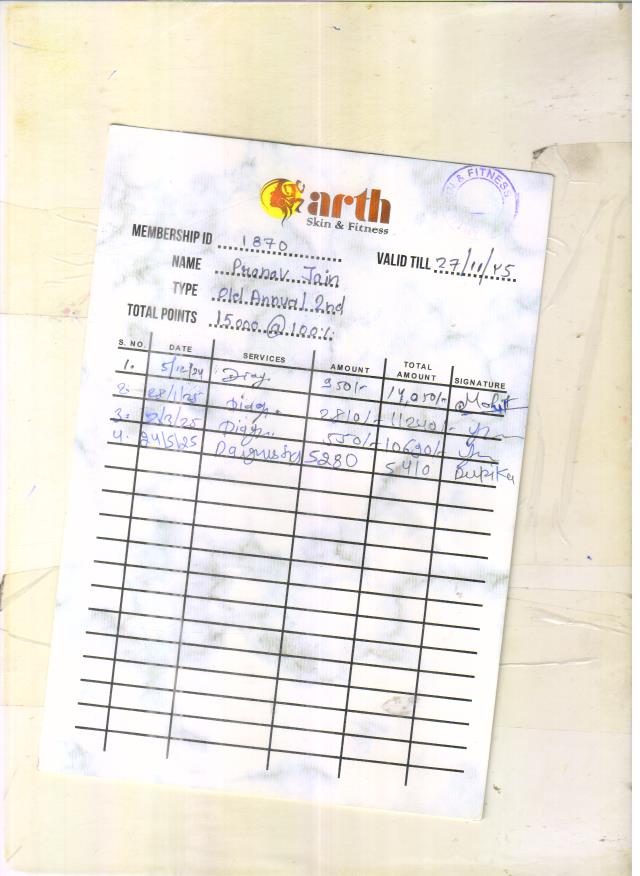 arth
Skin & Fitness
& FITNESS
MEMBERSHIP ID 1870
VALID TILL 27/11/25
NAME Pranav Jain
TYPE Old Annual 2nd
TOTAL POINTS 15000 @ 100%
S. NO. DATE SERVICES AMOUNT TOTAL AMOUNT SIGNATURE
1. 5/12/24 Diag. 950/- 14,050/- Mohit
2. 28/1/25 Diagn. 2810/- 11240/-
3. /3/25 Diagn. 550/- 10690/-
4. 24/5/25 5280 5410 Dupika